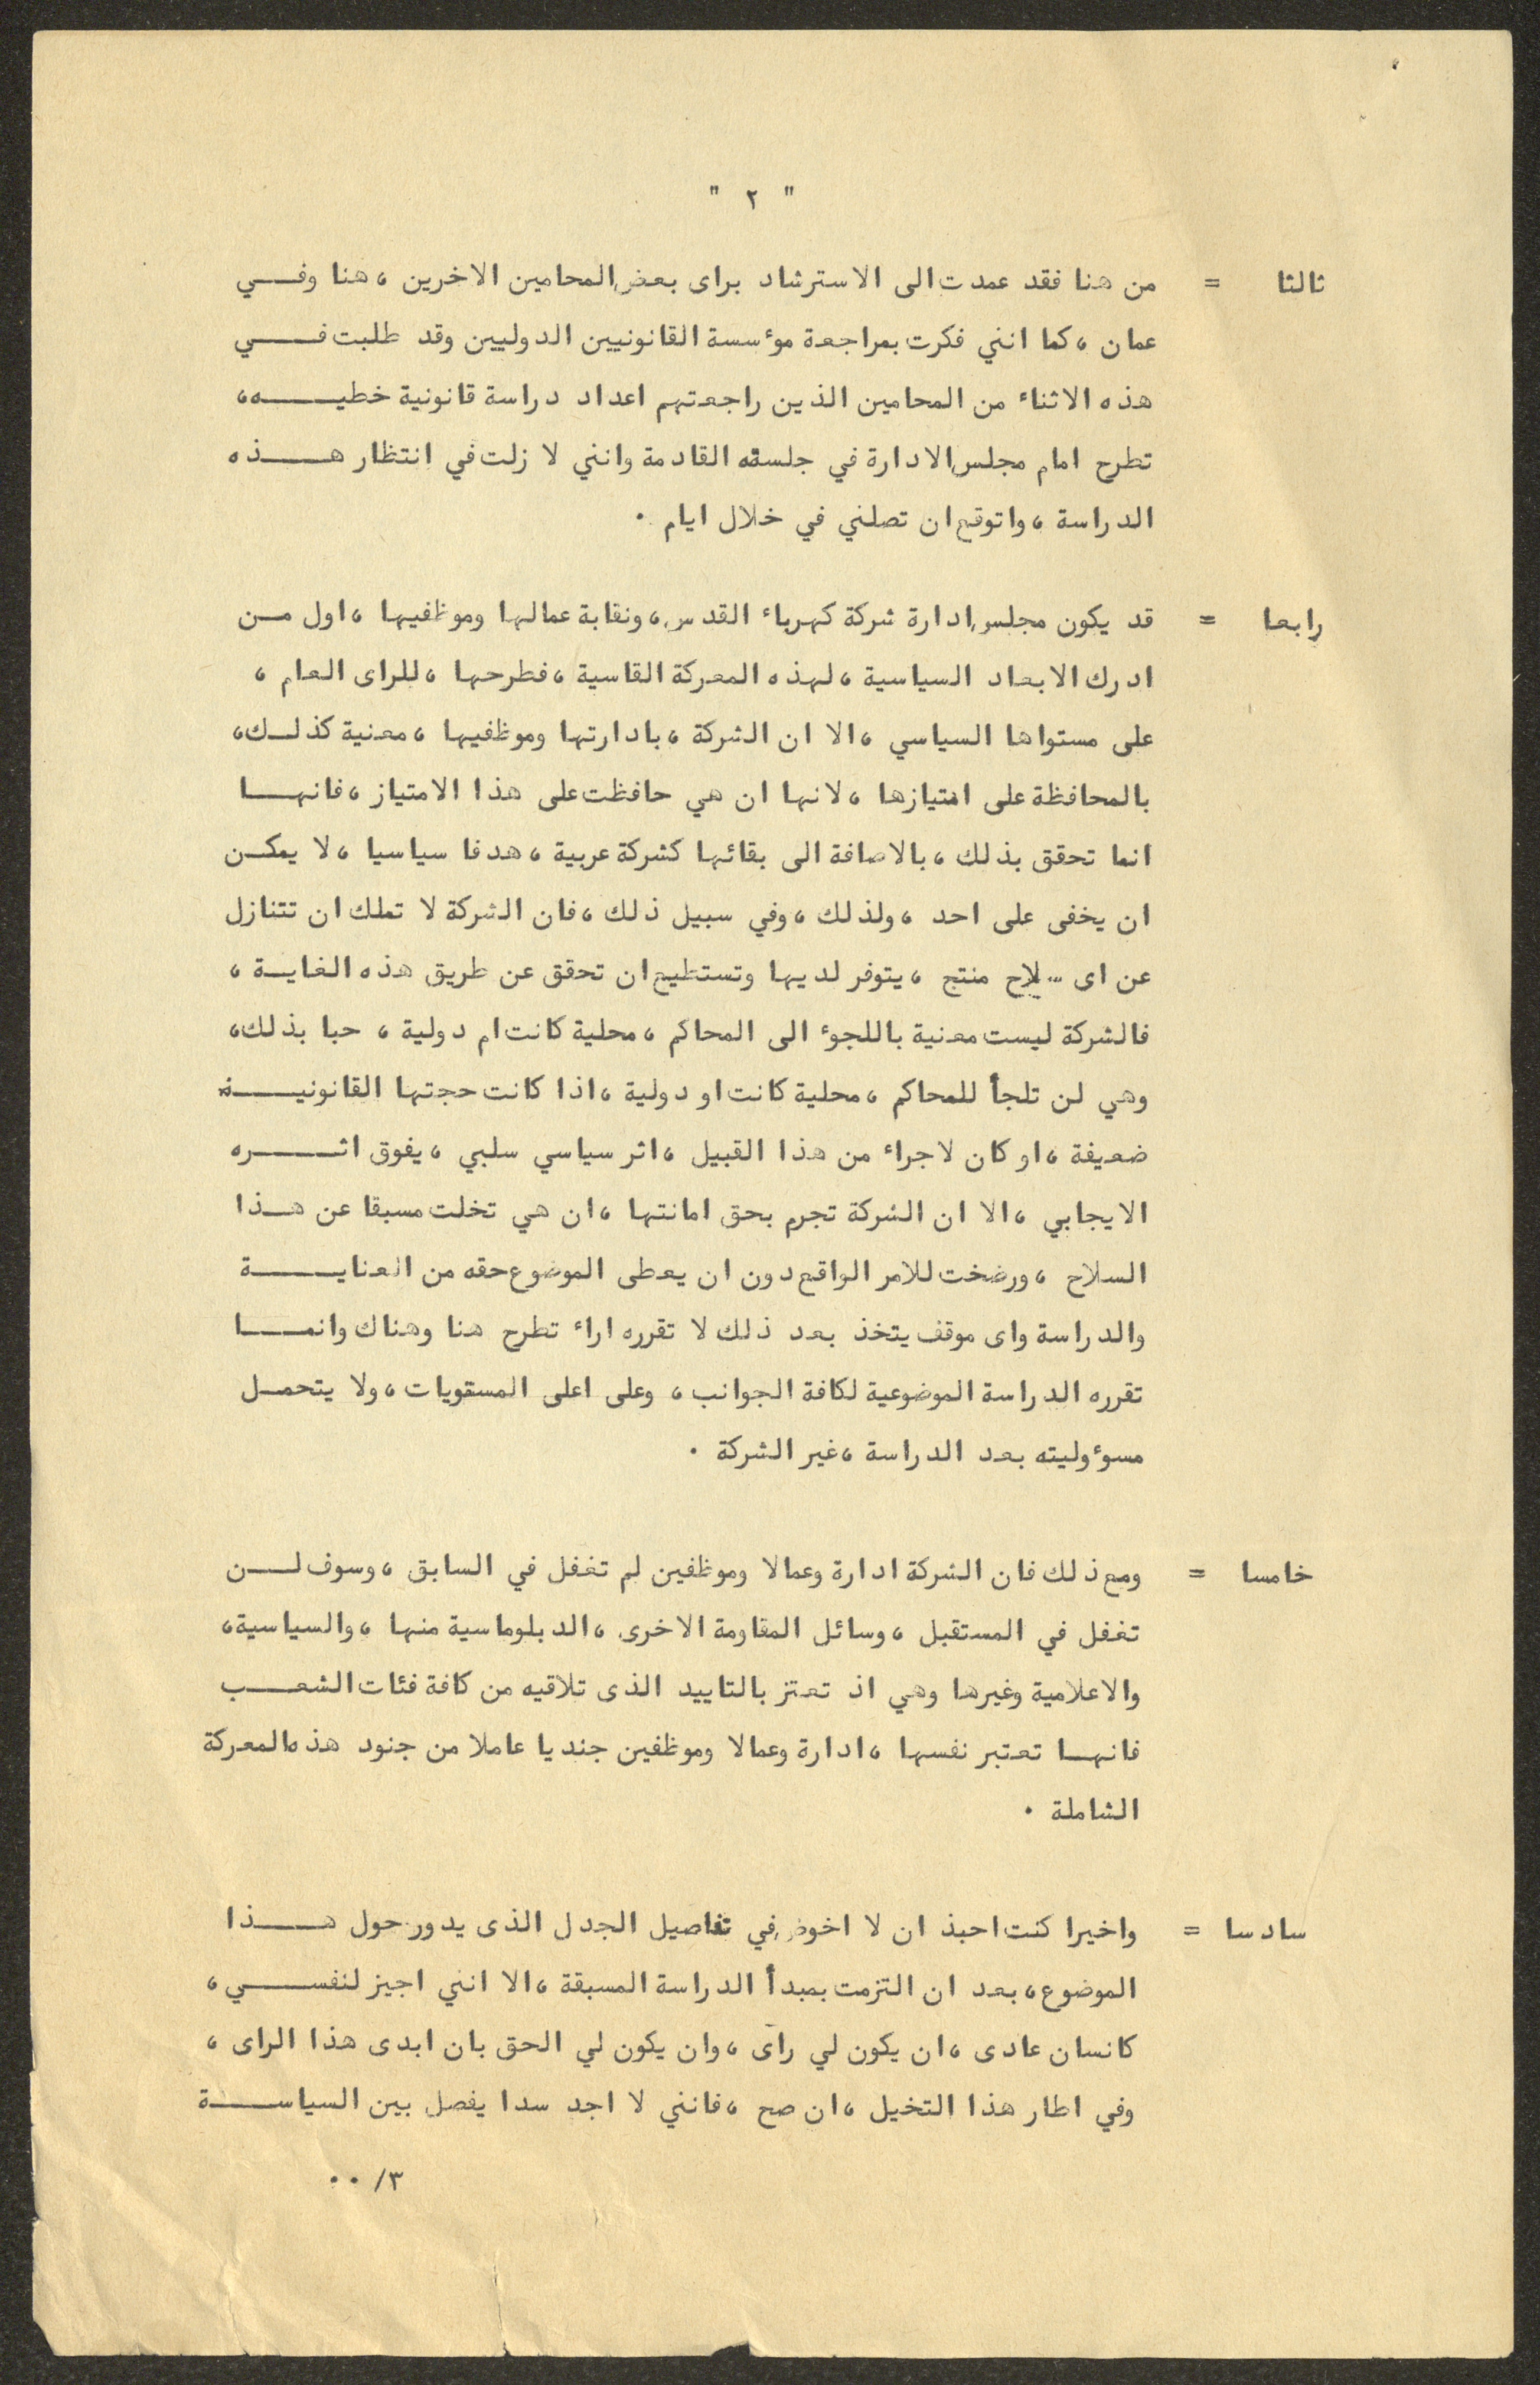 " ٢ "
ثالثا = من هنا فقد عمدت الى الاسترشاد براى بعض المحامين الاخرين ، هنا وفي
عمان ، كما انني فكرت بمراجعة موءسسة القانونيين الدوليين وقد طلبت في
هذه الاثناء من المحامين الذين راجعتهم اعداد دراسة قانونية خطيه ،
تطرح امام مجلس الادارة في جلسته القادمة وانني لا زلت في انتظار هذه
الدراسة ، واتوقع ان تصلني في خلال ايام .
رابعا = قد يكون مجلس ادارة شركة كهرباء القدس ، ونقابة عمالها وموظفيها ، اول من
ادرك الابعاد السياسية ، لهذه المعركة القاسية ، فطرحها ، للراى العام ،
على مستواها السياسي ، الا ان الشركة ، بادارتها وموظفيها ، معنية كذلك ،
بالمحافظة على امتيازها ، لانها ان هي حافظت على هذا الامتياز ، فانها
انما تحقق بذلك ، بالاضافة الى بقائها كشركة عربية ، هدفا سياسيا ، لا يمكن
ان يخفى على احد ، ولذلك ، وفي سبيل ذلك ، فان الشركة لا تملك ان تتنازل
عن اى سلاح منتج ، يتوفر لديها وتستطيع ان تحقق عن طريق هذه الغاية ،
فالشركة ليست معنية باللجوء الى المحاكم ، محلية كانت ام دولية ، حبا بذلك ،
وهي لن تلجأ للمحاكم ، محلية كانت او دولية ، اذا كانت حجتها القانونية
ضعيفة ، او كان لاجراء من هذا القبيل ، اثر سياسي سلبي ، يفوق اثره
الايجابي ، الا ان الشركة تجرم بحق امانتها ، ان هي تخلت مسبقا عن هذا
السلاح ، ورضخت للامر الواقع دون ان يعطى الموضوع حقه من العناية
والدراسة واى موقف يتخذ بعد ذلك لا تقرره اراء تطرح هنا وهناك وانما
تقرره الدراسة الموضوعية لكافة الجوانب ، وعلى اعلى المستويات ، ولا يتحمل
مسوءوليته بعد الدراسة ، غير الشركة .
خامسا = ومع ذلك فان الشركة ادارة وعمالا وموظفين لم تغفل في السابق ، وسوف لن
تغفل في المستقبل ، وسائل المقاومة الاخرى ، الدبلوماسية منها ، والسياسية ،
والاعلامية وغيرها وهي اذ تعتز بالتاييد الذى تلاقيه من كافة فئات الشعب
فانها تعتبر نفسها ، ادارة وعمالا وموظفين جنديا عاملا من جنود هذه المعركة
الشاملة .
سادسا = واخيرا كنت احبذ ان لا اخوض في تفاصيل الجدل الذى يدور حول هذا
الموضوع ، بعد ان التزمت بمبدأ الدراسة المسبقة ، الا انني اجيز لنفسي ،
كانسان عادى ، ان يكون لي راى ، وان يكون لي الحق بان ابدى هذا الراى ،
وفي اطار هذا التخيل ، ان صح ، فانني لا اجد سدا يفصل بين السياسة
٣/ ..